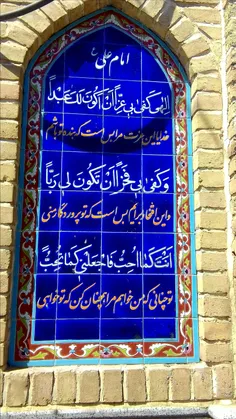 امام علی ع
الهی کفی بی عزّاً أن أکون لک عبداً
خدایا این عزت مرا بس است که بنده تو باشم
وکفی بی فخراً أن تکون لی ربّاً
و این افتخار برایم بس است که تو پروردگار منی
أنت کما أحبّ فاجعلنی کما تحبّ
تو چنانی که من خواهم مرا همچنان کن که تو خواهی